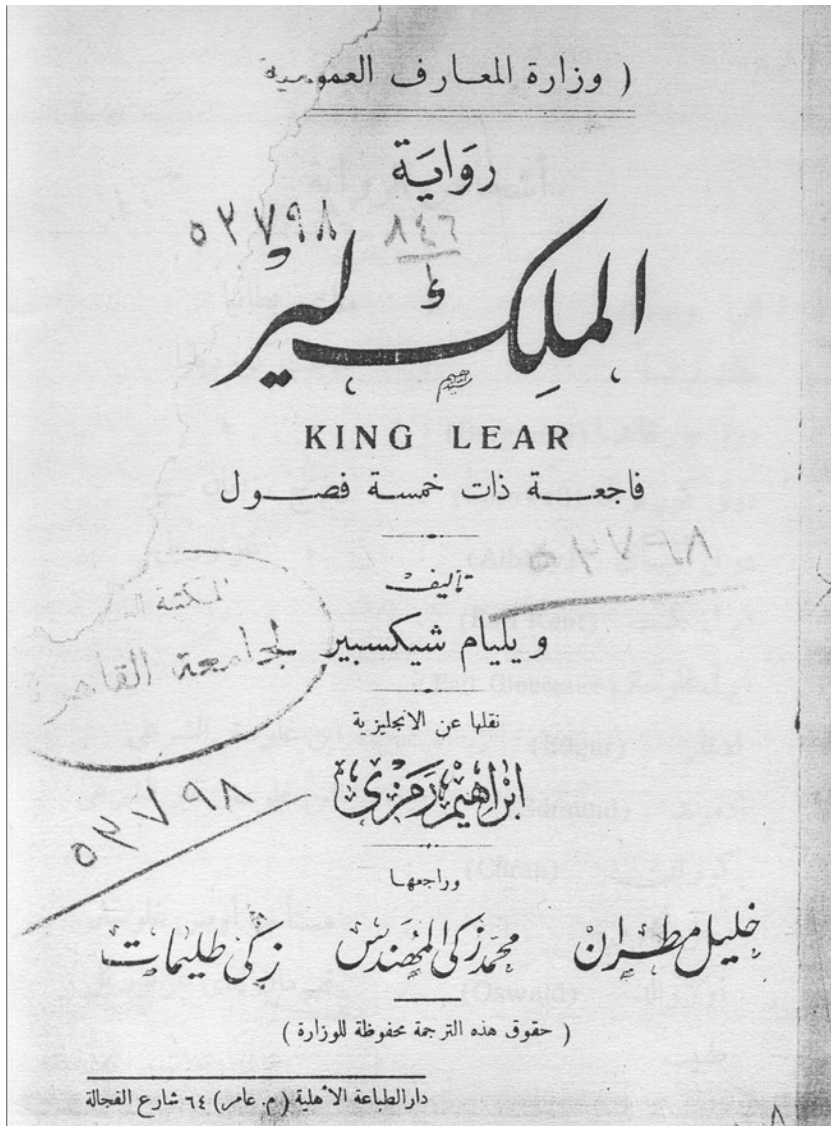 ( وزارة المعارف العمومية
رِوَايَة
٥٢٧٩٨
٨٤٦
الملِك لير
KING LEAR
فاجعة ذات خمسة فصول
٥٢٧٩٨
تأليف
ويليام شيكسبير
المكتبة
لجامعة القاهرة
نقلها عن الانجليزية
ابراهيم رمزى
٥٢٧٩٨
وراجعها
خليل مطران محمد زكى المهندس زكى طليمات
( حقوق هذه الترجمة محفوظة للوزارة )
دار الطباعة الأهلية ( م. عامر ) ٦٤ شارع الفجالة